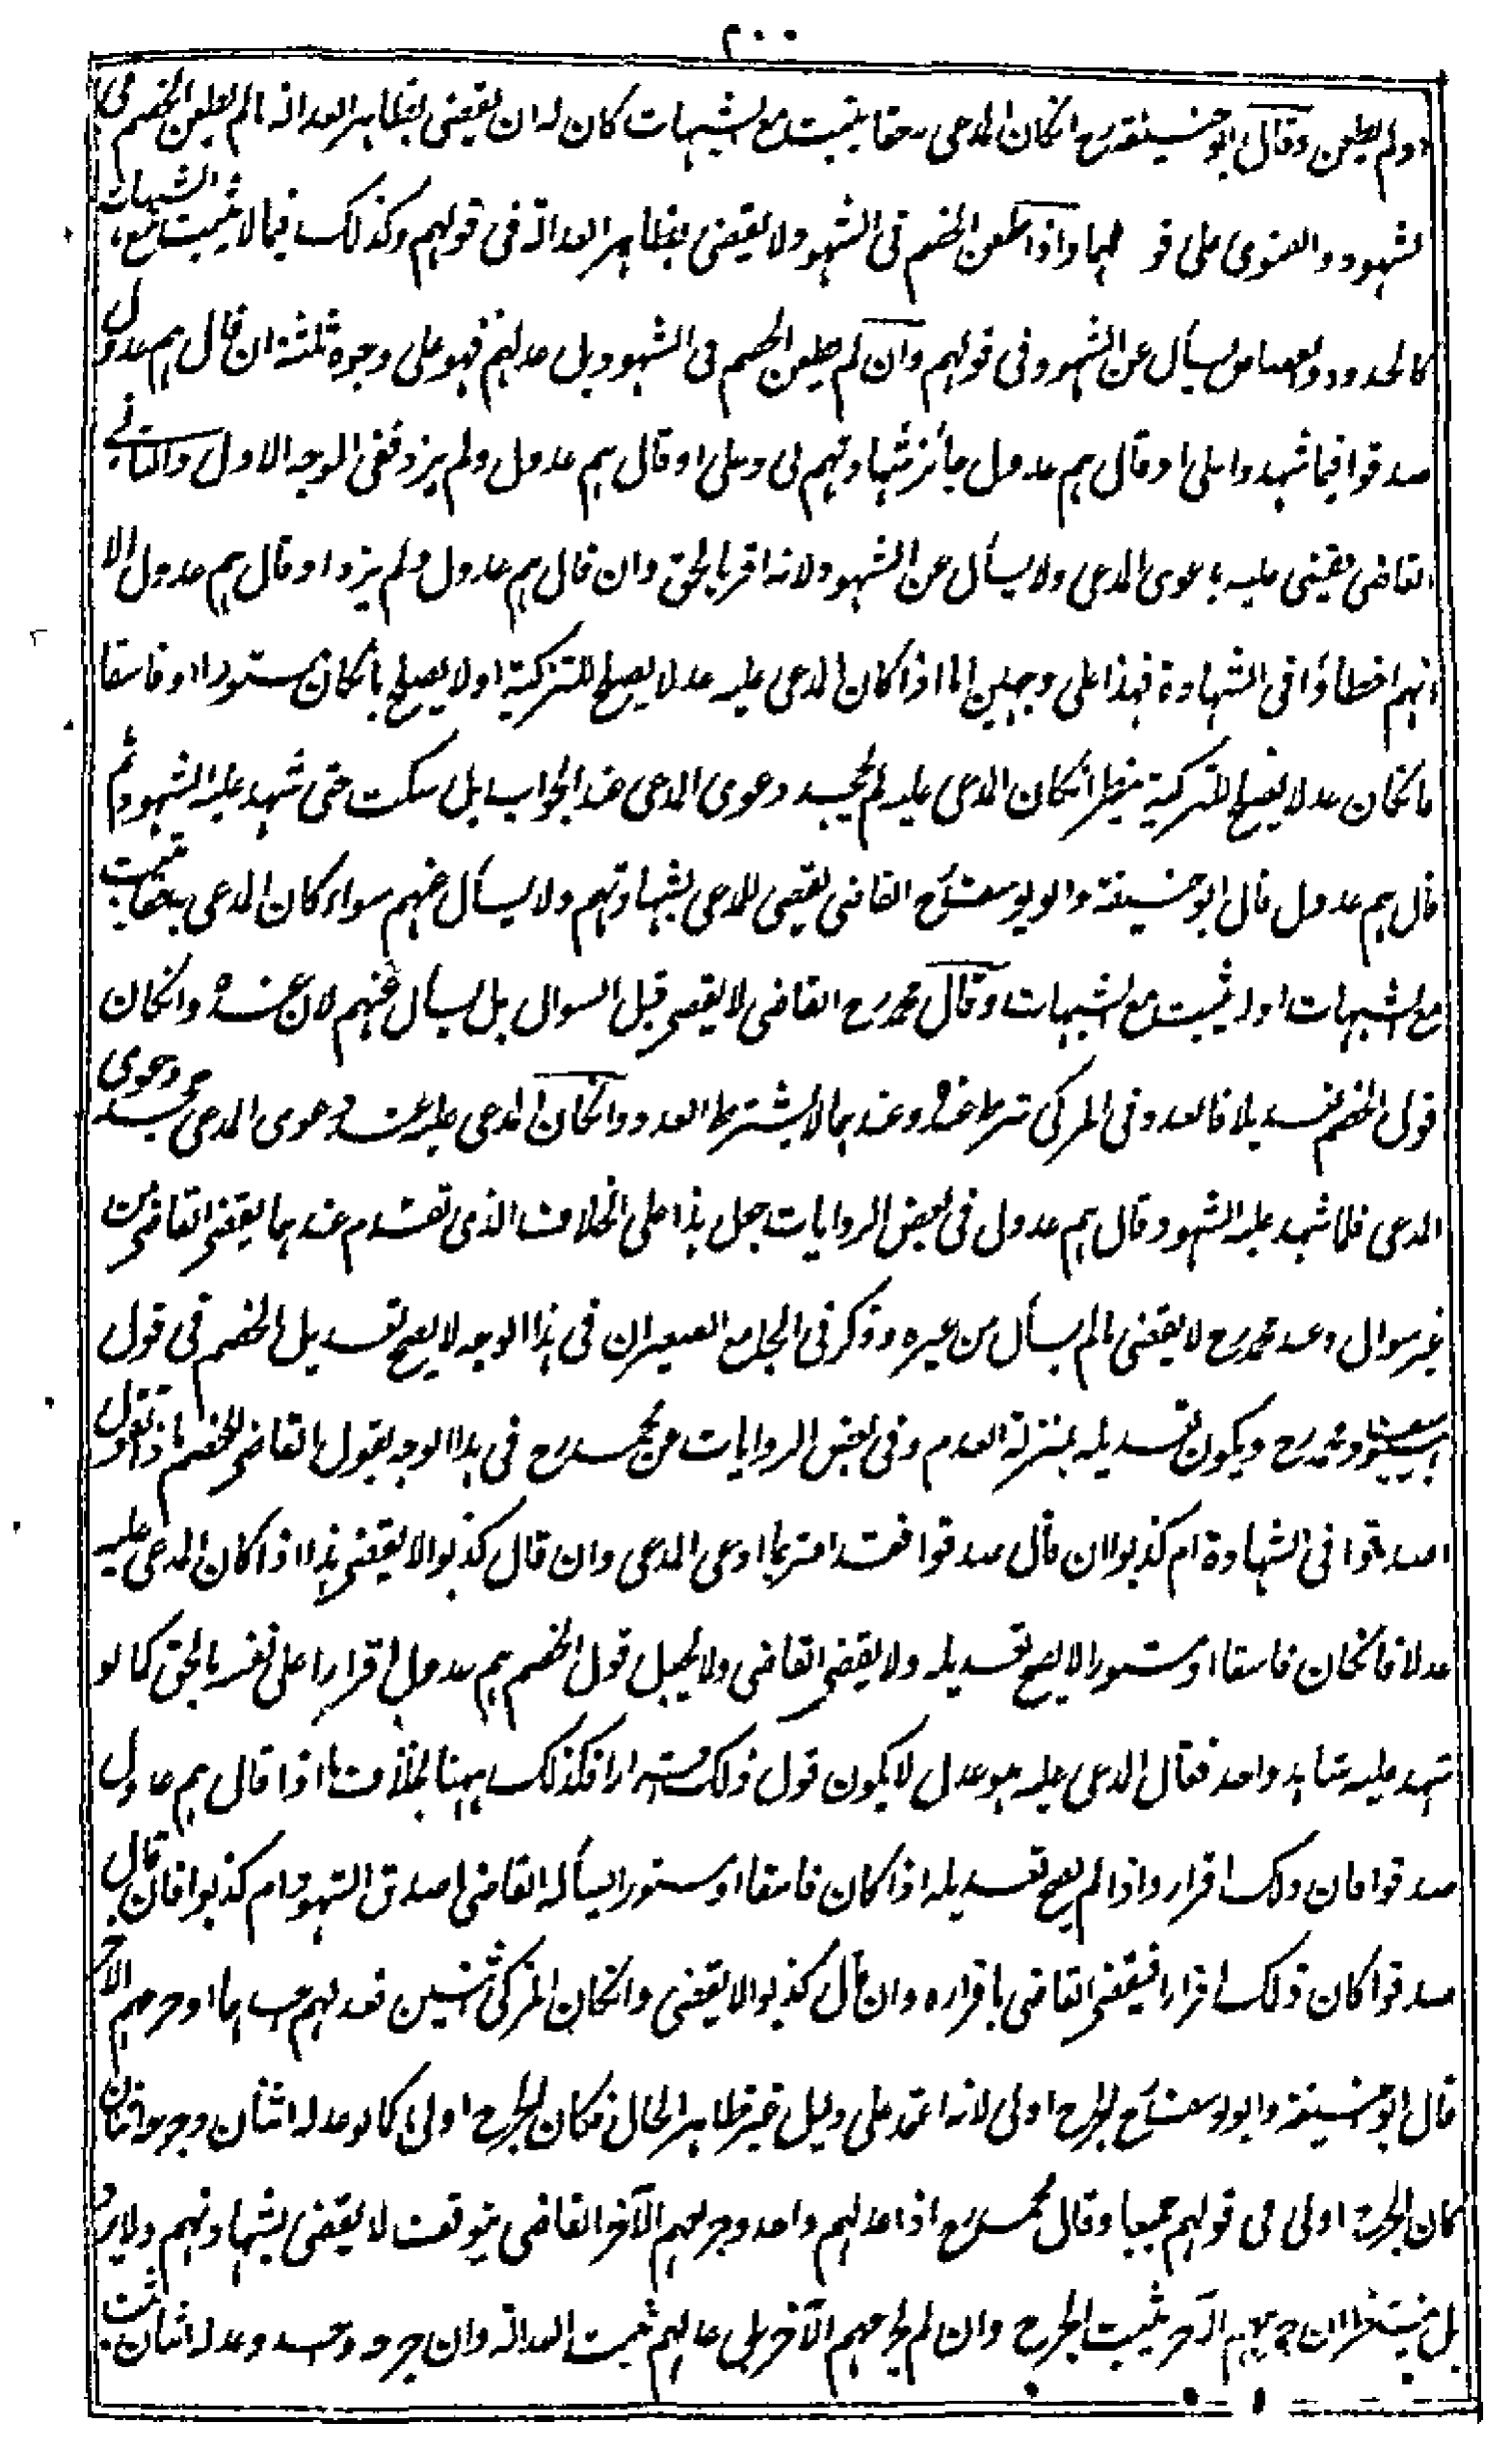 ٢٠٠
اولم يطعن وقال ابو حنيفة رح انكان المدعى حقا يثبت مع الشبهات كان له ان يقضى بظاهر العدالة مالم يطعن الخصم فى
الشهود والفتوى على قولهما واذا طعن الخصم فى الشهود لا يقضى بظاهر العدالة فى قولهم وكذلك فيما لا يثبت مع الشبهات
كالحدود والقصاص يسأل عن الشهود فى قولهم وان لم يطعن الخصم فى الشهود بل عدلهم فهو على وجوه ثلثة ان قال هم عدول
صدقوا فيما شهدوا على او قال هم عدول جائز شهادتهم لى وعلى او قال هم عدول ولم يزد ففى الوجه الاول والثانى
القاضى يقضى عليه بدعوى المدعى ولا يسأل عن الشهود لانه اقر بالحق وان قال هم عدول ولم يزد او قال هم عدول الا
انهم اخطأوا فى الشهادة فهذا على وجهين اما اذا كان المدعى عليه عدلا يصلح للتزكية او لا يصلح بانكان مستورا او فاسقا
فانكان عدلا يصلح للتزكية ينظر انكان المدعى عليه لم يجحد دعوى المدعى عند الجواب بل سكت حتى شهد عليه الشهود ثم
قال هم عدول قال ابو حنيفة وابو يوسف رح القاضى يقضى للمدعى بشهادتهم ولا يسأل عنهم سواء كان المدعى به حقا يثبت
مع الشبهات او لا يثبت مع الشبهات وقال محمد رح القاضى لا يقضى قبل السوال بل يسأل عنهم لان عنده وانكان
قول الخصم تعديلا فالعدد فى المزكى شرط عنده وعندهما لا يشترط العدد وانكان المدعى عليه عند دعوى المدعى جحد دعوى
المدعى فلما شهد عليه الشهود قال هم عدول فى بعض الروايات جعل هذا على الخلاف الذى تقدم عندهما يقضى القاضى من
غير سوال وعند محمد رح لا يقضى مالم يسأل من غيره وذكر فى الجامع الصغير ان فى هذا الوجه لا يصح تعديل الخصم فى قول
ابى يوسف ومحمد رح ويكون تعديله بمنزلة العدم وفى بعض الروايات عن محمد رح فى هذا الوجه يقول القاضى للخصم ماذا تقول
اصدقوا فى الشهادة ام كذبوا ان قال صدقوا فقد اقر بما ادعى المدعى وان قال كذبوا لا يقضى هذا اذا كان المدعى عليه
عدلا فانكان فاسقا او مستورا لا يصح تعديله ولا يقضى القاضى ولا يجعل قول الخصم هم عدول اقرارا على نفسه بالحق كما لو
شهد عليه شاهد واحد فقال المدعى عليه هو عدل لا يكون قول ذلك اقرارا فكذلك ههنا بخلاف ما اذا قال هم عدول
صدقوا فان ذلك اقرار واذا لم يصح تعديله اذا كان فاسقا او مستورا يسأله القاضى اصدق الشهود ام كذبوا فان قال
صدقوا كان ذلك اقرارا فيقضى القاضى باقراره وان قال كذبوا لا يقضى وانكان المزكى اثنين فعدلهم احدهما وجرحهم الآخر
قال ابو حنيفة وابو يوسف رح الجرح اولى لانه اعتمد على دليل غير ظاهر الحال فكان الجرح اولى كما لو عدله اثنان وجرحه اثنان
كان الجرح اولى فى قولهم جميعا وقال محمد رح اذا عدلهم واحد وجرحهم الآخر القاضى يتوقف لا يقضى بشهادتهم ولا يرد
بل ينتظر ان جرحهم آخر يثبت الجرح وان لم يجرحهم الآخر بل عدلهم ثبت العدالة وان جرحه واحد وعدله اثنان ثبت